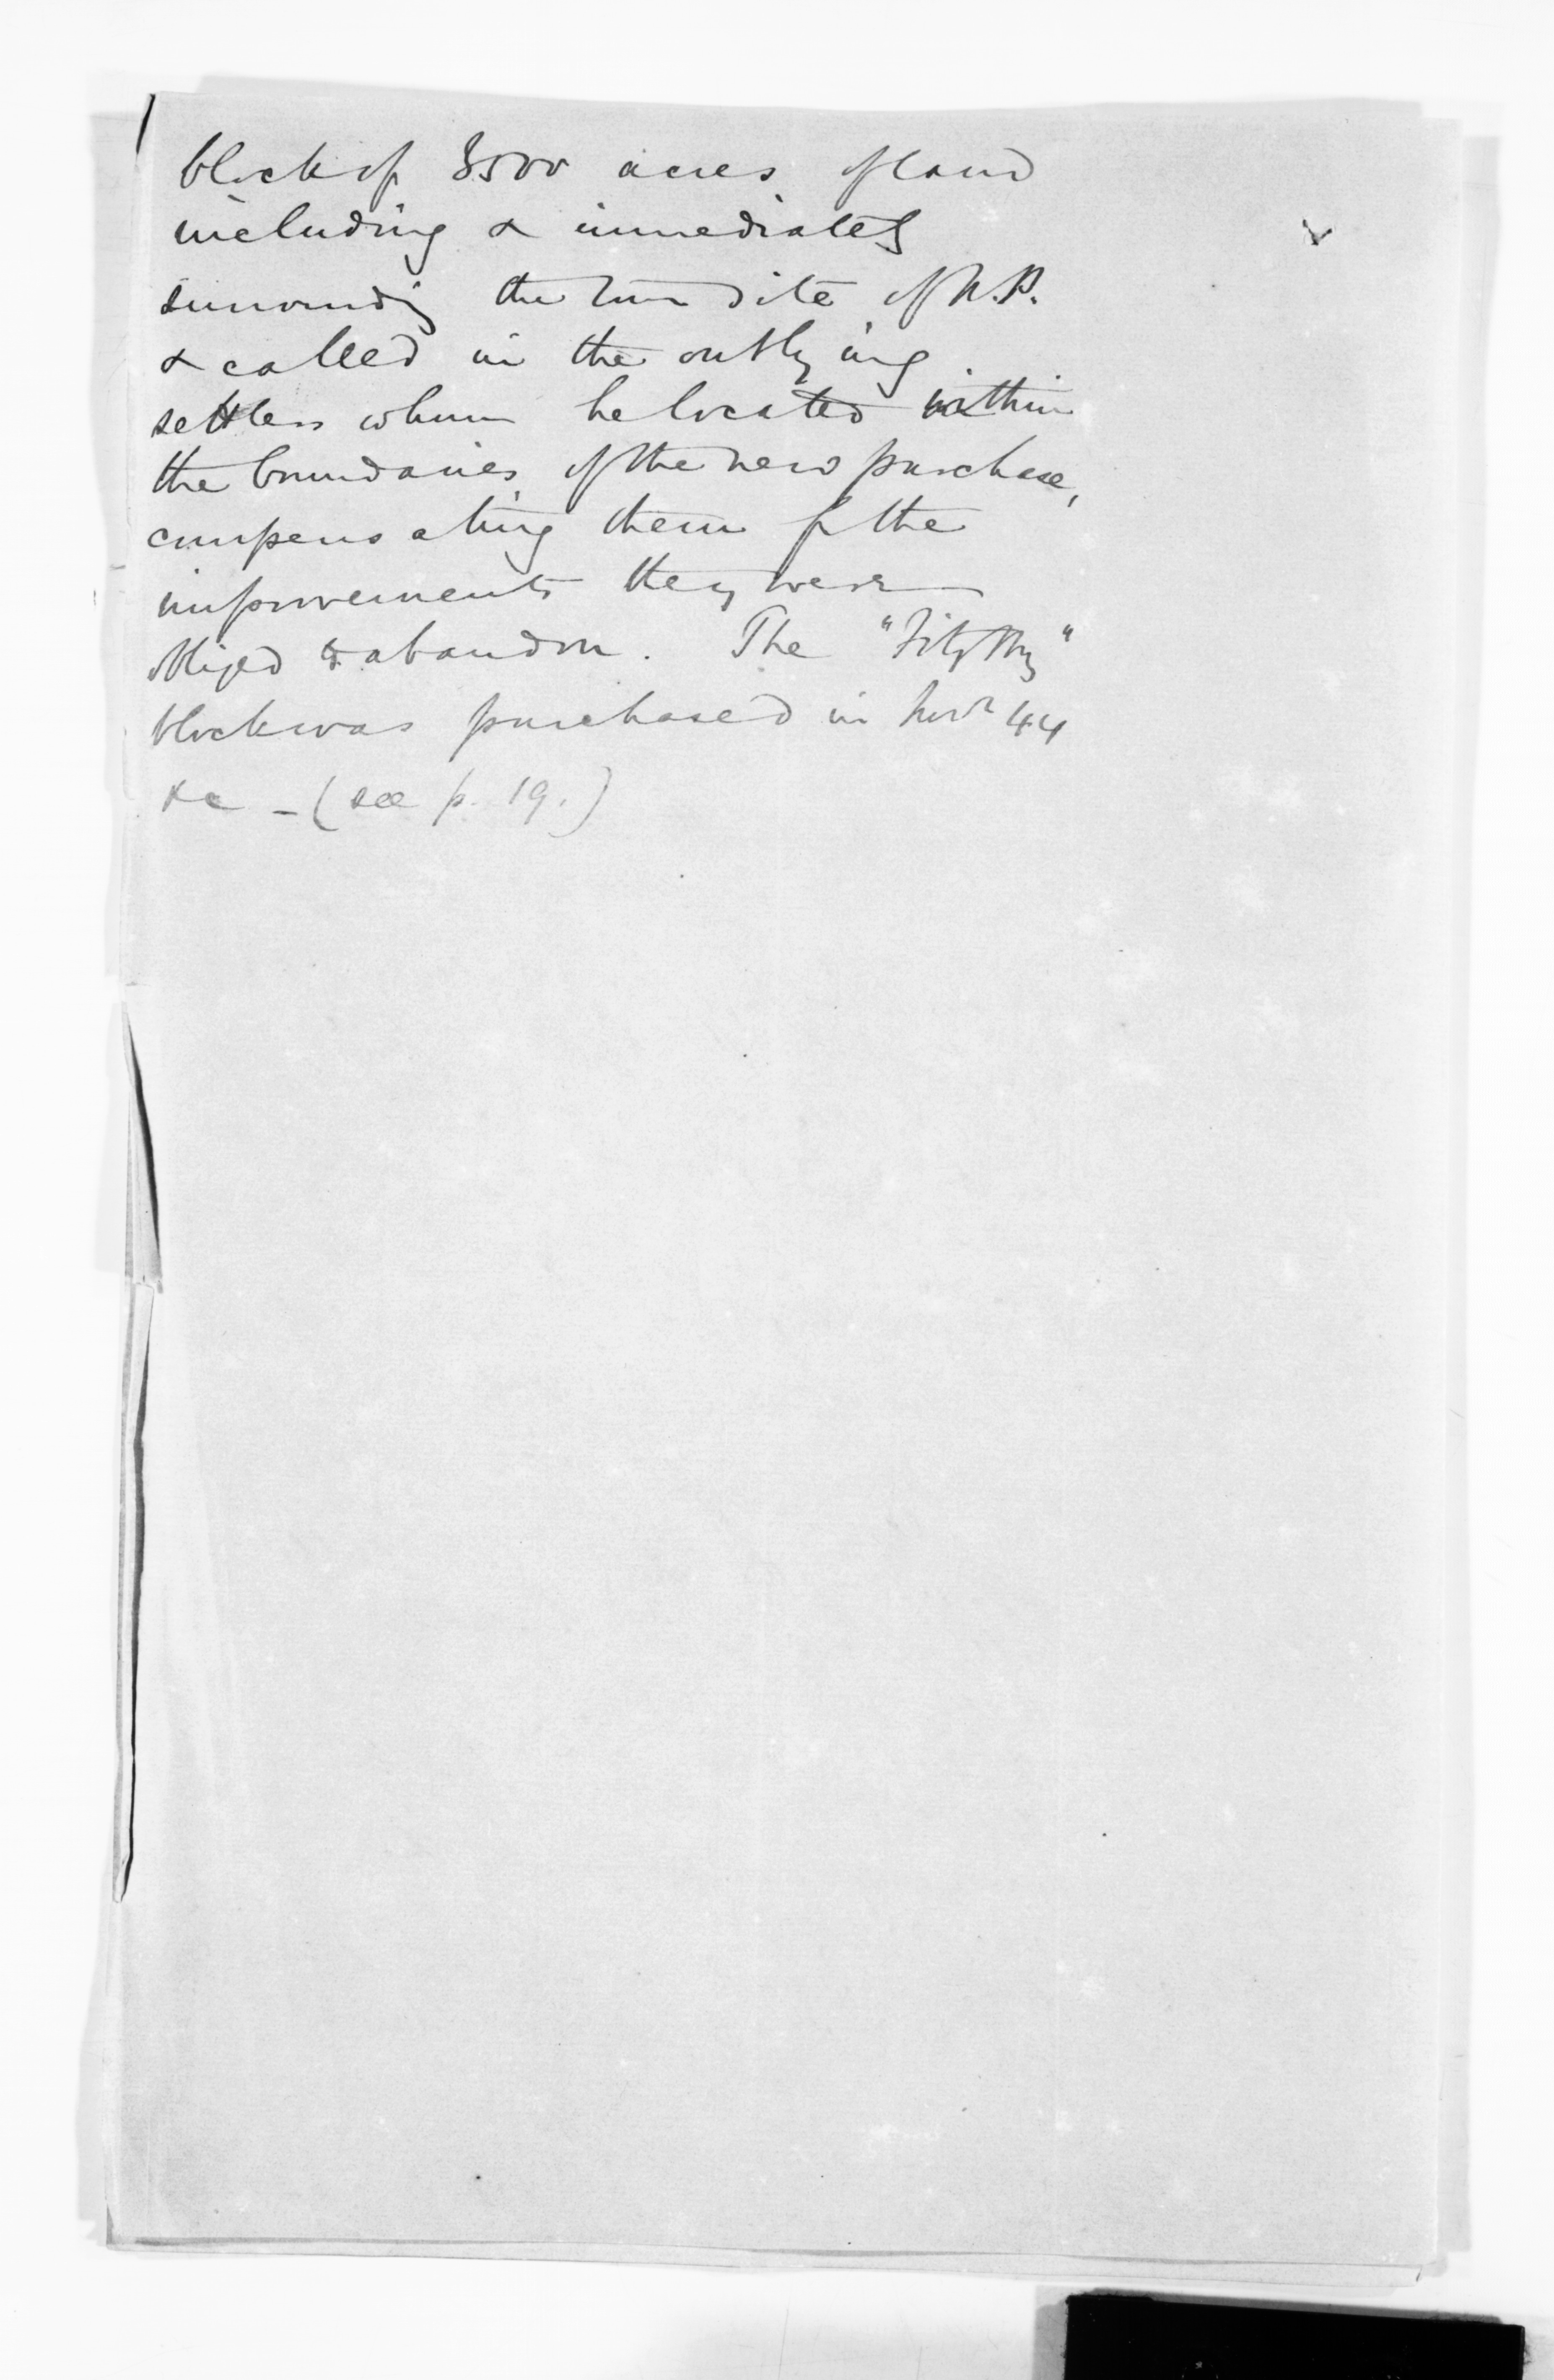 block of 3500 acres of land
including & immediately
surroundig the town site of N.P.
& called in the outlying
settlers whom he located within
the boundaries of the new purchase,
compensating them for the
improvements they were
obliged to abandon. The "FitzRoy"
block was purchased in Novr 44
&c - (see p. 19.)